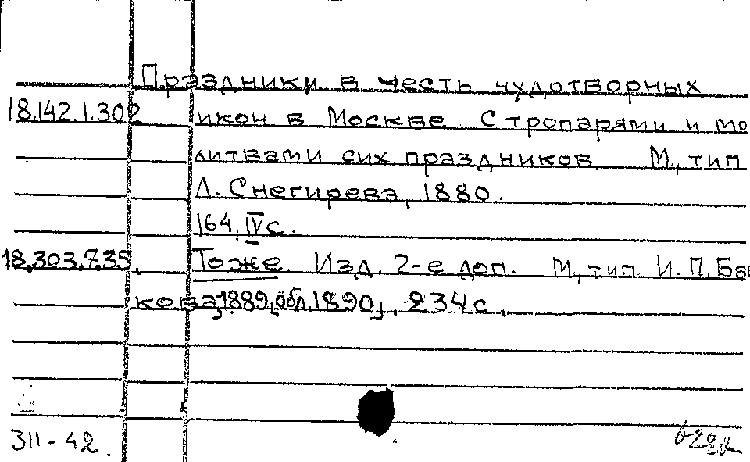 Праздники в честь чудотворных
18.142.1.302 икон в Москве. С тропарями и мо
литвами сих праздников М., тип
Л. Снегирева, 1880.
164, IV с.
18.303.7.35 Тоже. Изд. 2-е доп. М., тип. И. П. Ба
кова, 1889, [обл. 1890], 234 с.
311-42